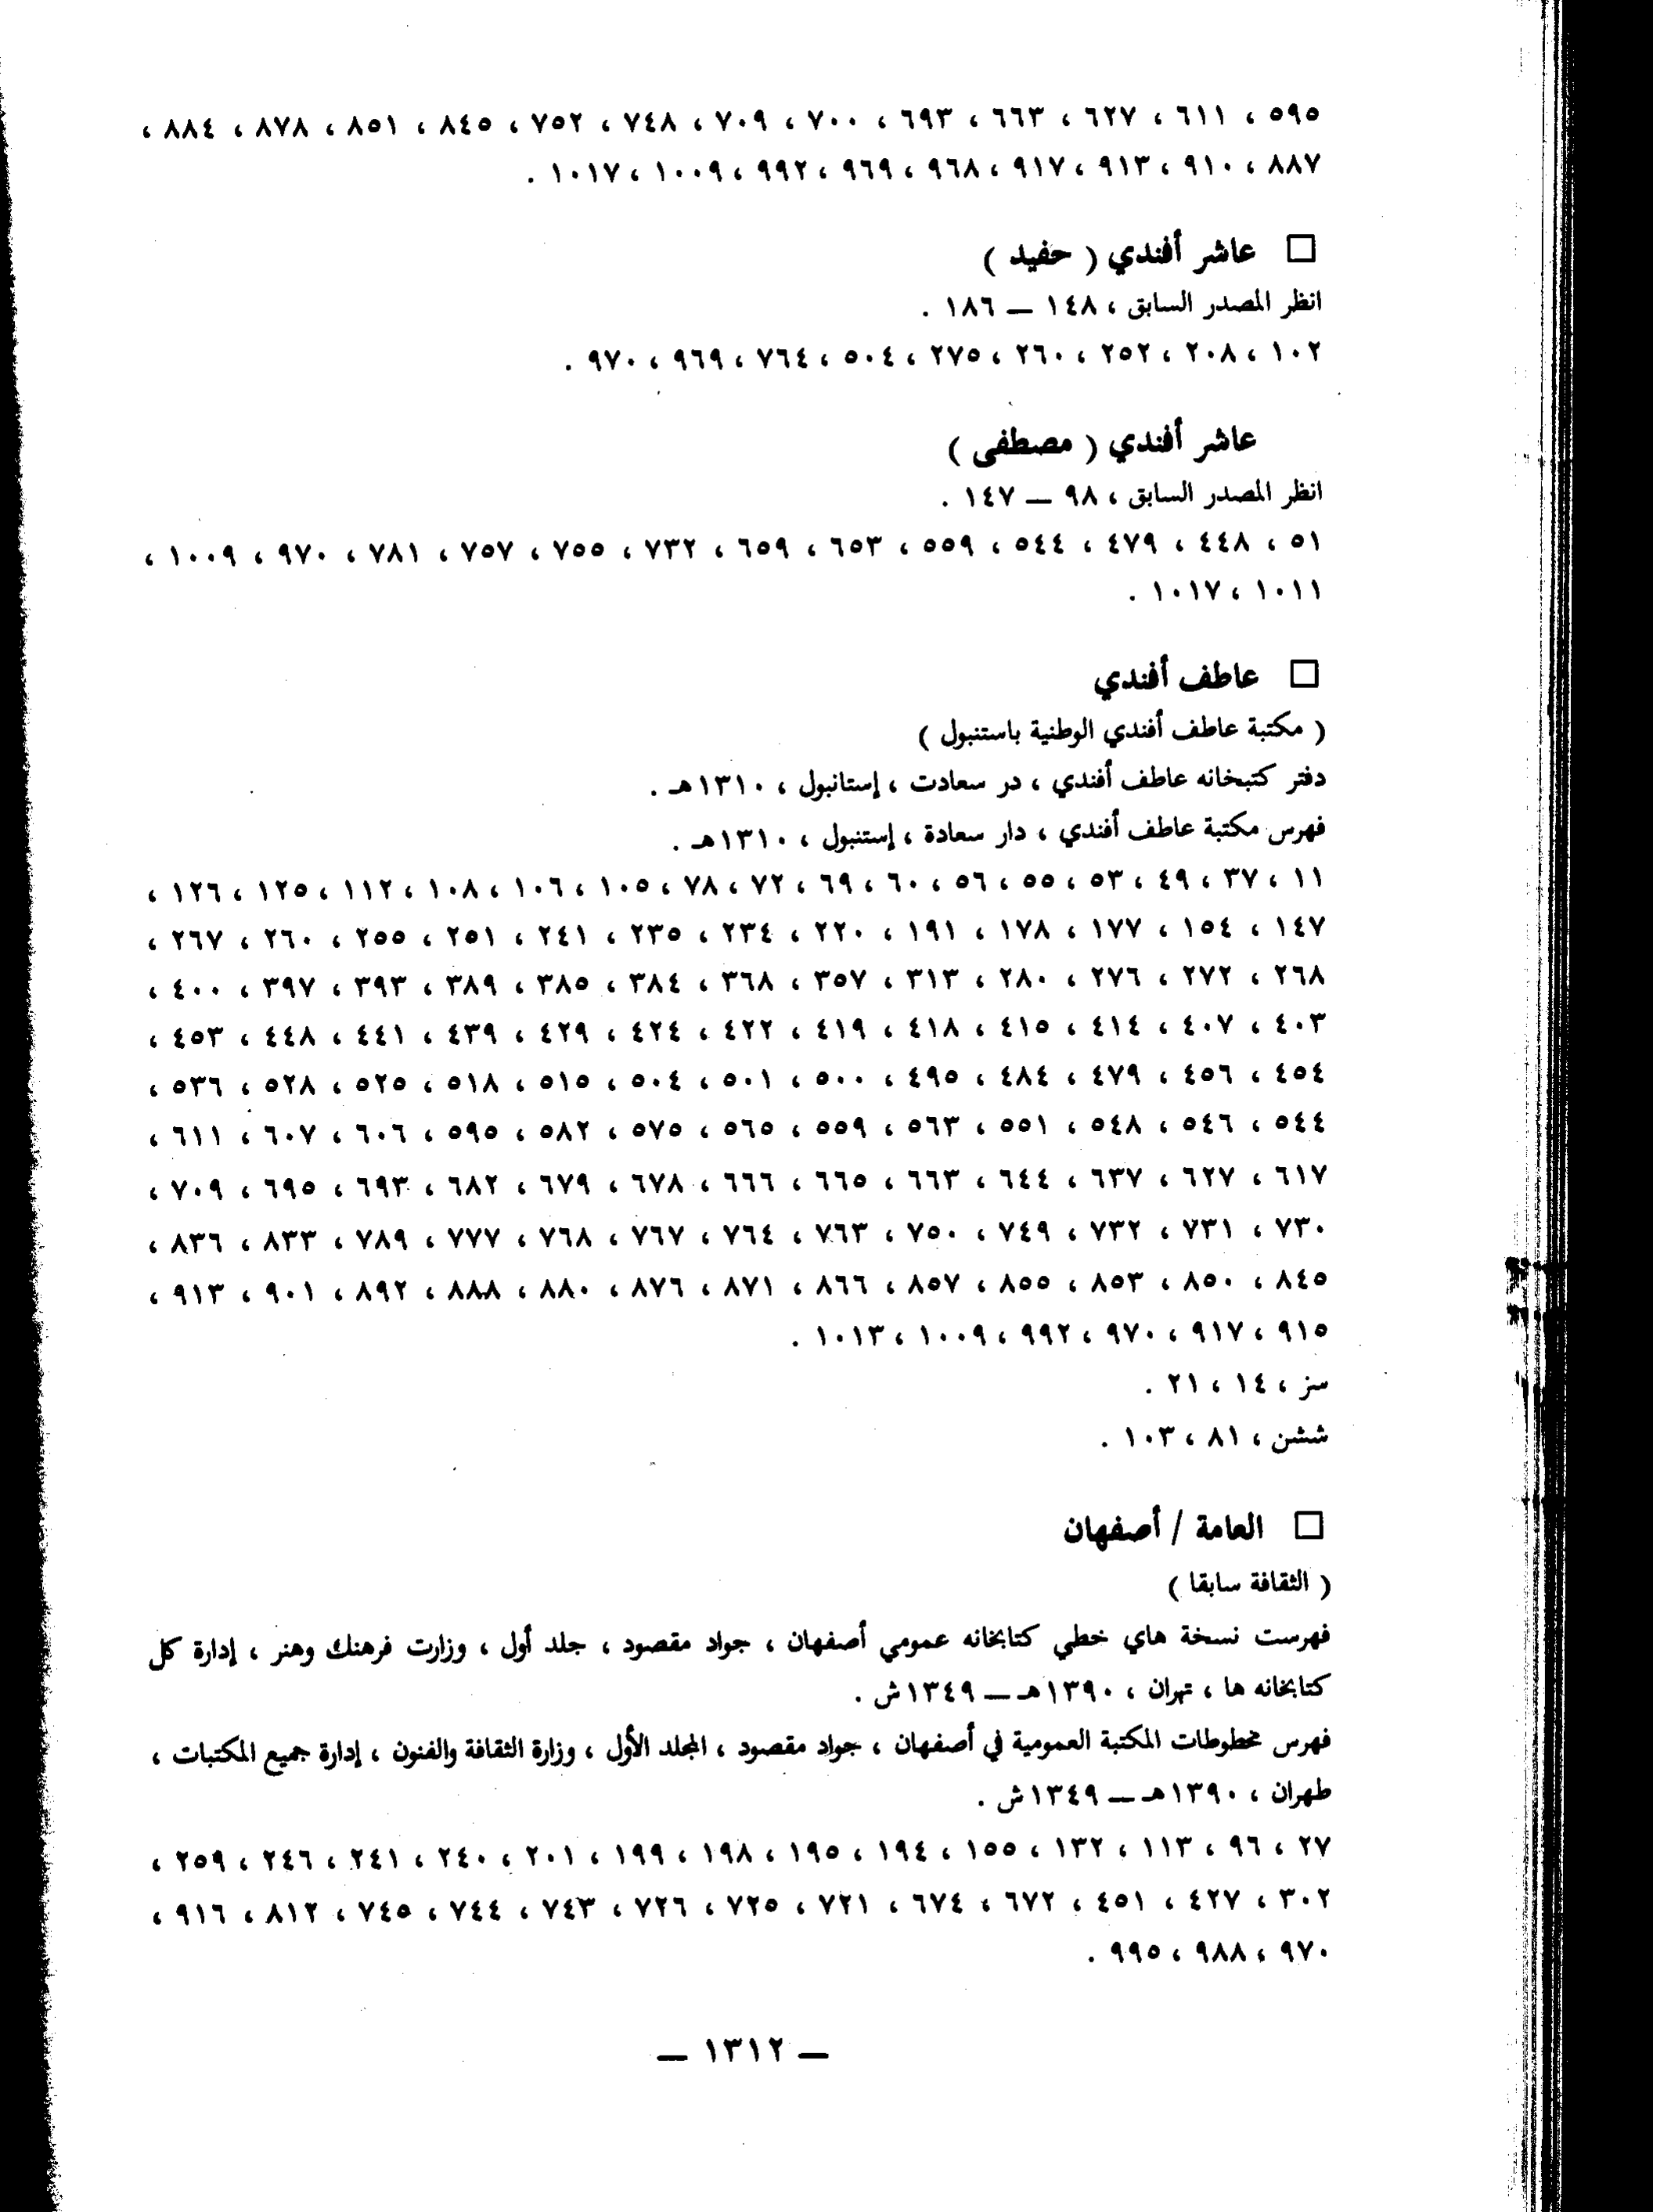 ٥٩٥ ، ٦١١ ، ٦٢٧ ، ٦٦٣ ، ٦٩٣ ، ٧٠٠ ، ٧٠٩ ، ٧٤٨ ، ٧٥٢ ، ٨٤٥ ، ٨٥١ ، ٨٧٨ ، ٨٨٤ ،
٨٨٧ ، ٩١٠ ، ٩١٣ ، ٩١٧ ، ٩٦٨ ، ٩٦٩ ، ٩٩٢ ، ١٠٠٩ ، ١٠١٧ .
□ عاشر أفندي ( حفيد )
انظر المصدر السابق ، ١٤٨ — ١٨٦ .
١٠٢ ، ٢٠٨ ، ٢٥٢ ، ٢٦٠ ، ٢٧٥ ، ٥٠٤ ، ٧٦٤ ، ٩٦٩ ، ٩٧٠ .
عاشر أفندي ( مصطفى )
انظر المصدر السابق ، ٩٨ — ١٤٧ .
٥١ ، ٤٤٨ ، ٤٧٩ ، ٥٤٤ ، ٥٥٩ ، ٦٥٣ ، ٦٥٩ ، ٧٣٢ ، ٧٥٥ ، ٧٥٧ ، ٧٨١ ، ٩٧٠ ، ١٠٠٩ ،
١٠١١ ، ١٠١٧ .
□ عاطف أفندي
( مكتبة عاطف أفندي الوطنية باستنبول )
دفتر كتبخانه عاطف أفندي ، در سعادت ، إستانبول ، ١٣١٠هـ .
فهرس مكتبة عاطف أفندي ، دار سعادة ، إستنبول ، ١٣١٠هـ .
١١ ، ٣٧ ، ٤٩ ، ٥٣ ، ٥٥ ، ٥٦ ، ٦٠ ، ٦٩ ، ٧٢ ، ٧٨ ، ١٠٥ ، ١٠٦ ، ١٠٨ ، ١١٢ ، ١٢٥ ، ١٢٦ ،
١٤٧ ، ١٥٤ ، ١٧٧ ، ١٧٨ ، ١٩١ ، ٢٢٠ ، ٢٣٤ ، ٢٣٥ ، ٢٤١ ، ٢٥١ ، ٢٥٥ ، ٢٦٠ ، ٢٦٧ ،
٢٦٨ ، ٢٧٢ ، ٢٧٦ ، ٢٨٠ ، ٣١٣ ، ٣٥٧ ، ٣٦٨ ، ٣٨٤ ، ٣٨٥ ، ٣٨٩ ، ٣٩٣ ، ٣٩٧ ، ٤٠٠ ،
٤٠٣ ، ٤٠٧ ، ٤١٤ ، ٤١٥ ، ٤١٨ ، ٤١٩ ، ٤٢٢ ، ٤٢٤ ، ٤٢٩ ، ٤٣٩ ، ٤٤١ ، ٤٤٨ ، ٤٥٣ ،
٤٥٤ ، ٤٥٦ ، ٤٧٩ ، ٤٨٤ ، ٤٩٥ ، ٥٠٠ ، ٥٠١ ، ٥٠٤ ، ٥١٥ ، ٥١٨ ، ٥٢٥ ، ٥٢٨ ، ٥٣٦ ،
٥٤٤ ، ٥٤٦ ، ٥٤٨ ، ٥٥١ ، ٥٦٣ ، ٥٥٩ ، ٥٦٥ ، ٥٧٥ ، ٥٨٢ ، ٥٩٥ ، ٦٠٦ ، ٦٠٧ ، ٦١١ ،
٦١٧ ، ٦٢٧ ، ٦٣٧ ، ٦٤٤ ، ٦٦٣ ، ٦٦٥ ، ٦٦٦ ، ٦٧٨ ، ٦٧٩ ، ٦٨٢ ، ٦٩٣ ، ٦٩٥ ، ٧٠٩ ،
٧٣٠ ، ٧٣١ ، ٧٣٢ ، ٧٤٩ ، ٧٥٠ ، ٧٦٣ ، ٧٦٤ ، ٧٦٧ ، ٧٦٨ ، ٧٧٧ ، ٧٨٩ ، ٨٣٣ ، ٨٣٦ ،
٨٤٥ ، ٨٥٠ ، ٨٥٣ ، ٨٥٥ ، ٨٥٧ ، ٨٦٦ ، ٨٧١ ، ٨٧٦ ، ٨٨٠ ، ٨٨٨ ، ٨٩٢ ، ٩٠١ ، ٩١٣ ،
٩١٥ ، ٩١٧ ، ٩٧٠ ، ٩٩٢ ، ١٠٠٩ ، ١٠١٣ .
سز ، ١٤ ، ٢١ .
ششن ، ٨١ ، ١٠٣ .
□ العامة / أصفهان
( الثقافة سابقا )
فهرست نسخة هاي خطي كتابخانه عمومي أصفهان ، جواد مقصود ، جلد أول ، وزارت فرهنك وهنر ، إدارة كل
كتابخانه ها ، تهران ، ١٣٩٠هـ — ١٣٤٩ش .
فهرس مخطوطات المكتبة العمومية في أصفهان ، جواد مقصود ، المجلد الأول ، وزارة الثقافة والفنون ، إدارة جميع المكتبات ،
طهران ، ١٣٩٠هـ — ١٣٤٩ش .
٢٧ ، ٩٦ ، ١١٣ ، ١٣٢ ، ١٥٥ ، ١٩٤ ، ١٩٥ ، ١٩٨ ، ١٩٩ ، ٢٠١ ، ٢٤٠ ، ٢٤١ ، ٢٤٦ ، ٢٥٩ ،
٣٠٢ ، ٤٢٧ ، ٤٥١ ، ٦٧٢ ، ٦٧٤ ، ٧٢١ ، ٧٢٥ ، ٧٢٦ ، ٧٤٣ ، ٧٤٤ ، ٧٤٥ ، ٨١٢ ، ٩١٦ ،
٩٧٠ ، ٩٨٨ ، ٩٩٥ .
— ١٣١٢ —